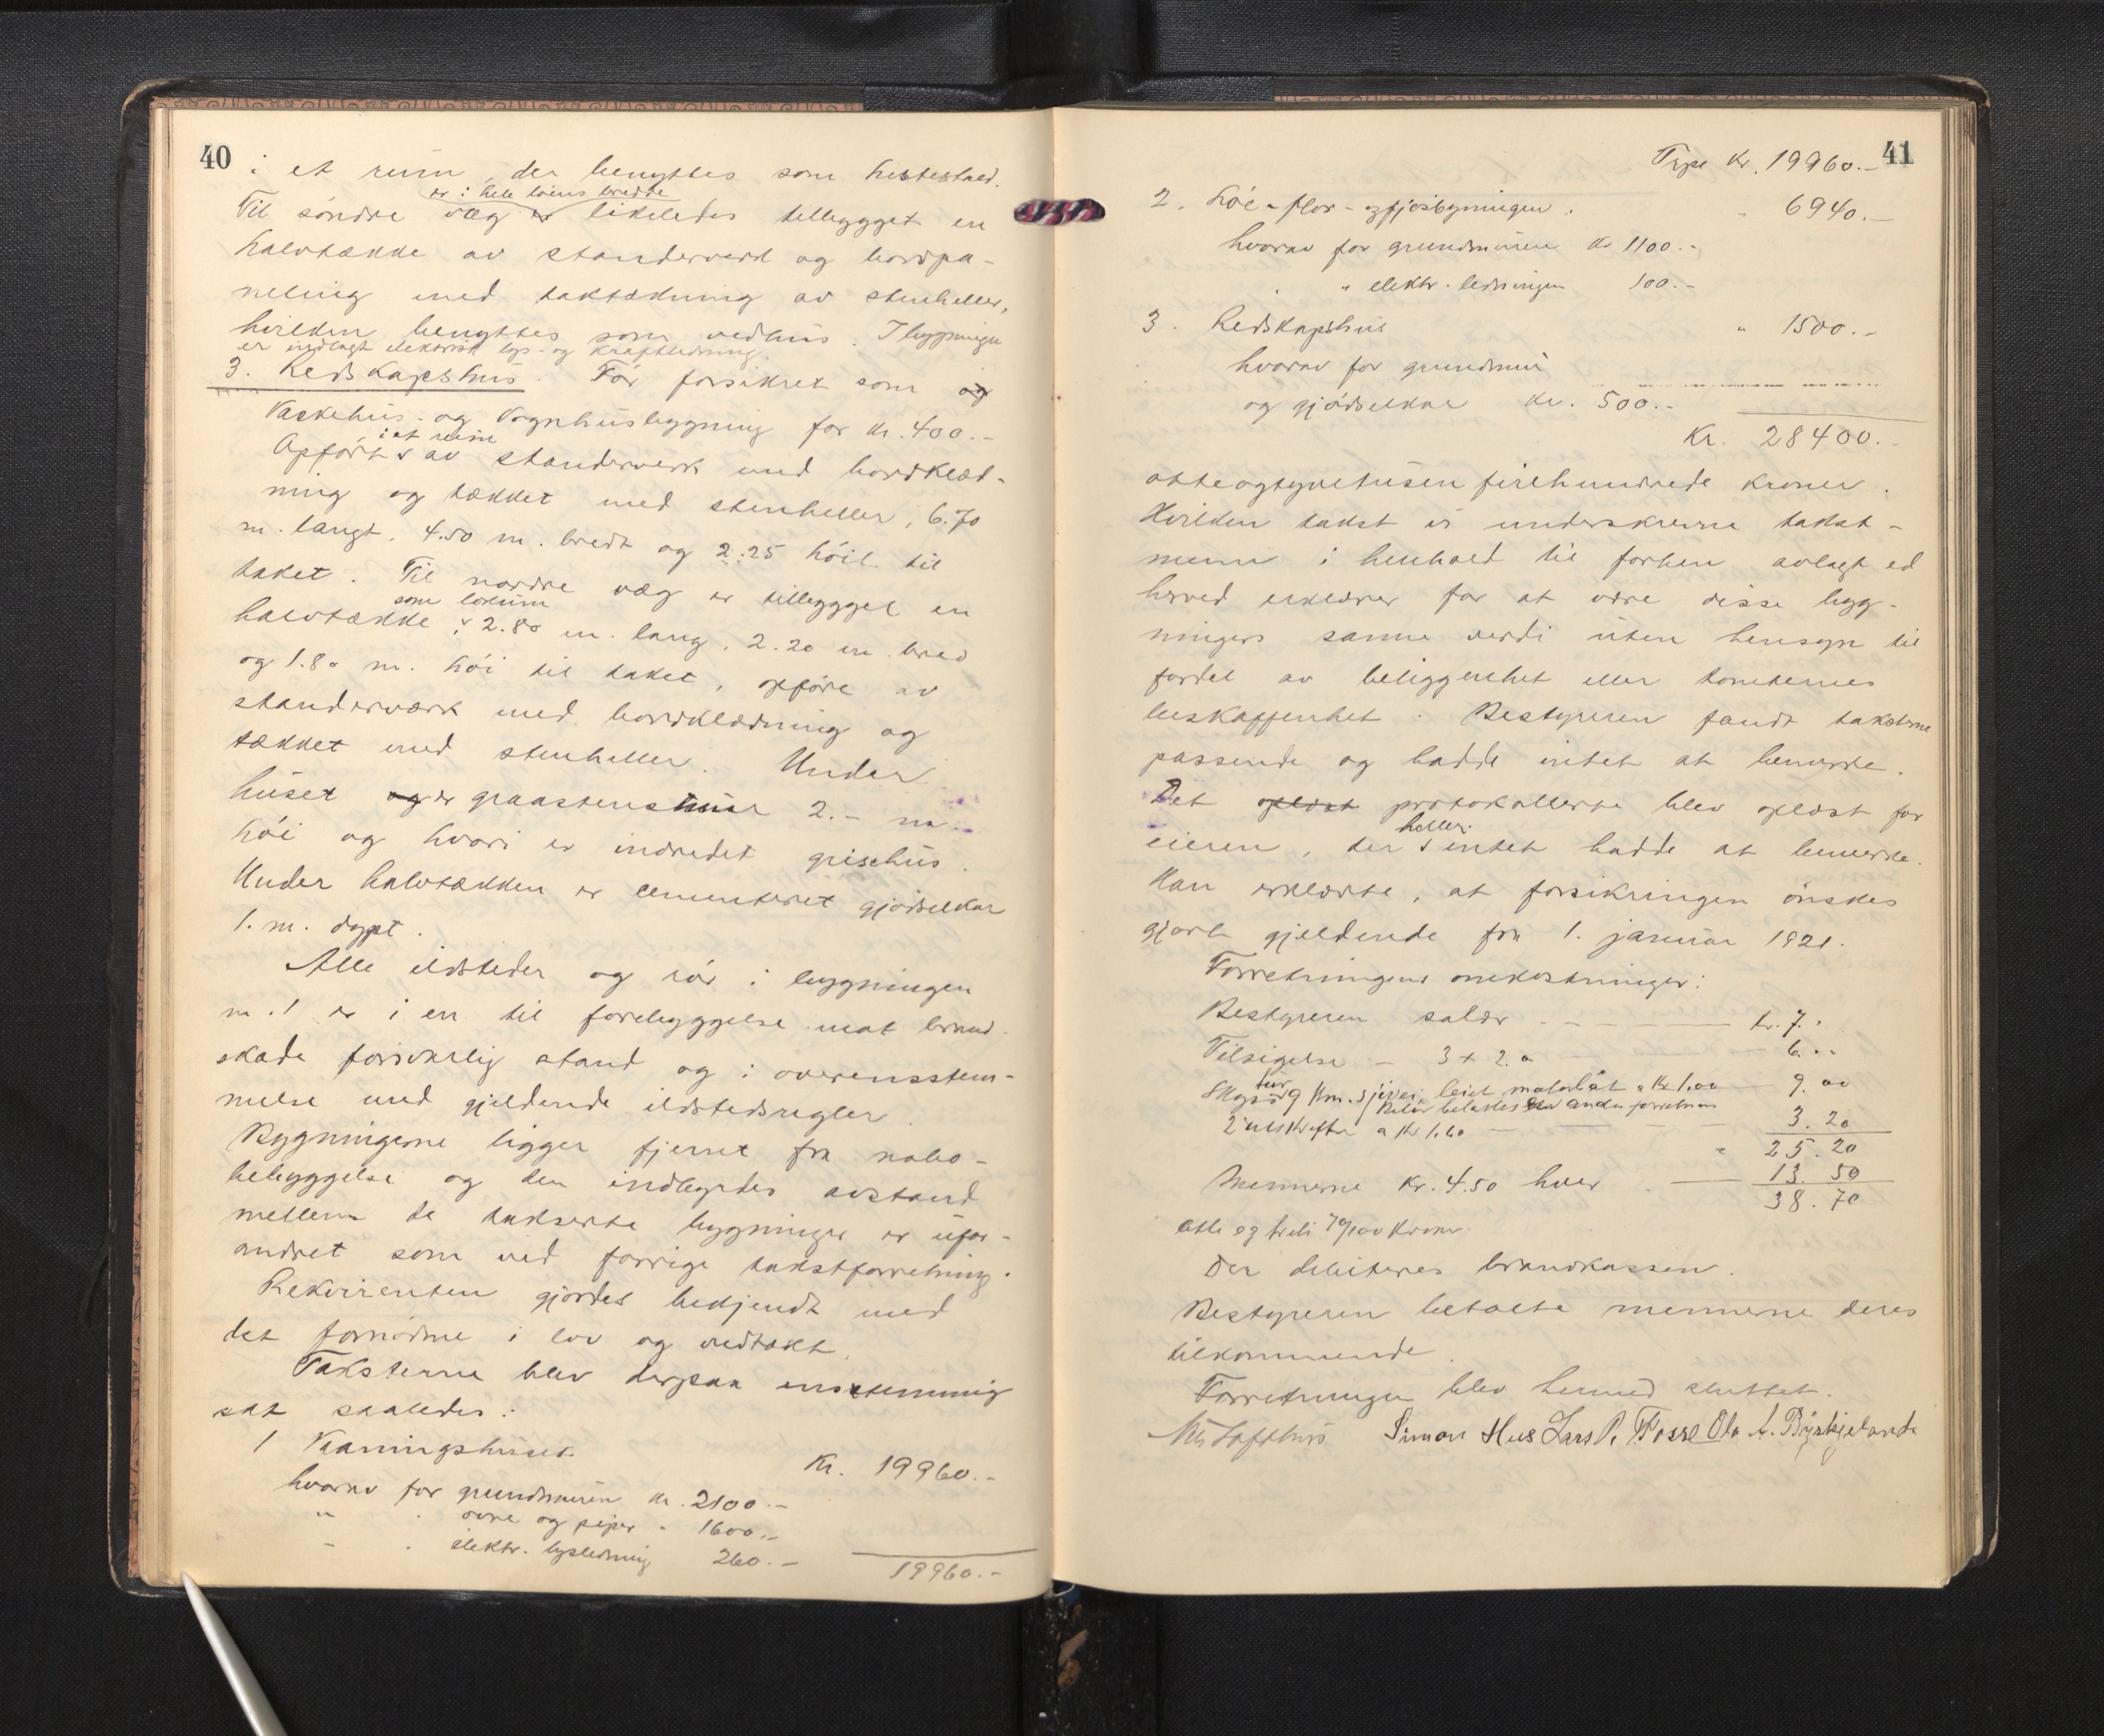 40
i et rum, der benyttes som hestestald.
er i hele løens bredde
Til søndre væg er likeledes tilbygget en
halvtække av standerverk og bordpa-
neling med taktækning av stenheller,
hvilken benyttes som vedhus. I bygningen
er indlagt elektrisk lys- og kraftledning.
3. Redskapshus. Før forsikret som og
Vaskehus- og Vognhusbygning for kr. 400.-
i et rum
Opført av standerverk med bordklæd-
ning og tækket med stenheller, 6.70
m. langt, 4.50 m. bredt og 2.25 høit til
taket. Til nordre væg er tilbygget en
som lokum
halvtække, 2.80 m. lang, 2.20 m. bred
og 1.80 m. høi til taket, opført av
standerværk med bordklædning og
tækket med stenheller. Under
huset og er graastensmur 2.- m.
høi og hvori er indredet grisehus.
Under halvtækken er cementeret gjødselkar
1. m. dypt.
Alle ildsteder og rør i bygningen
nr. 1 er i en til forebyggelse mot brand-
skade forsvarlig stand og i overensstem-
melse med gjeldende ildstedsregler.
Bygningerne ligger fjernt fra nabo-
bebyggelse og den indbyrdes avstand
mellem de takserte bygninger er ufor-
andret som ved forrige takstforretning.
Rekvirenten gjordes bekjendt med
det fornødne i lov og vedtækt.
Taksterne blev derpaa enstemmig
sat saaledes:
1 Vaaningshuset Kr. 19960.-
hvorav for grundmuren kr. 2100.-
" " ovne og piper " 1600.-
" " elektr. lysledning 260.-
19960.-
41
Trpt Kr. 19960.-
2. Løe- flor- og fjøsbygningen. " 6940.-
hvorav for grundmuren kr 1100.-
" " elektr. ledningen 100.-
3. Redskapshus " 1500.-
hvorav for grundmur
og gjødselkar kr. 500.-
Kr. 28400.-
otteogtyvetusen firehundrede kroner.
Hvilken takst vi underskrevne takst-
menn i henhold til forhen avlagt ed
herved erklærer for at være disse byg-
ningers sanne verdi uten hensyn til
fordel av beliggenhet eller tomternes
beskaffenhet. Bestyreren fandt taksterne
passende og hadde intet at bemerke.
Det oplæst protokollerte blev oplæst for
heller
eieren, der intet hadde at bemerke.
Han erklærte, at forsikringen ønskes
gjort gjeldende fra 1. januar 1921.
Forretningens omkostninger:
Bestyreren salær kr. 7.-
Tilsigelse - 3 x 2.- 6.--
tur
Skyss 9 km. sjøvei, leiet motorbåt a kr 1.00 9.00
Retur belastes anden forretning
2 utskrifter a kr 1.60 3.20
" 25.20
Mennerne kr. 4.50 hver 13.50
38.70
otte og treti 70/100 kroner.
Der debiteres brandkassen.
Bestyreren betalte mennerne deres
tilkommende.
Forretningen blev hermed sluttet.
Simon Hus Lars P. Fosse Ola A. Byrkjeland